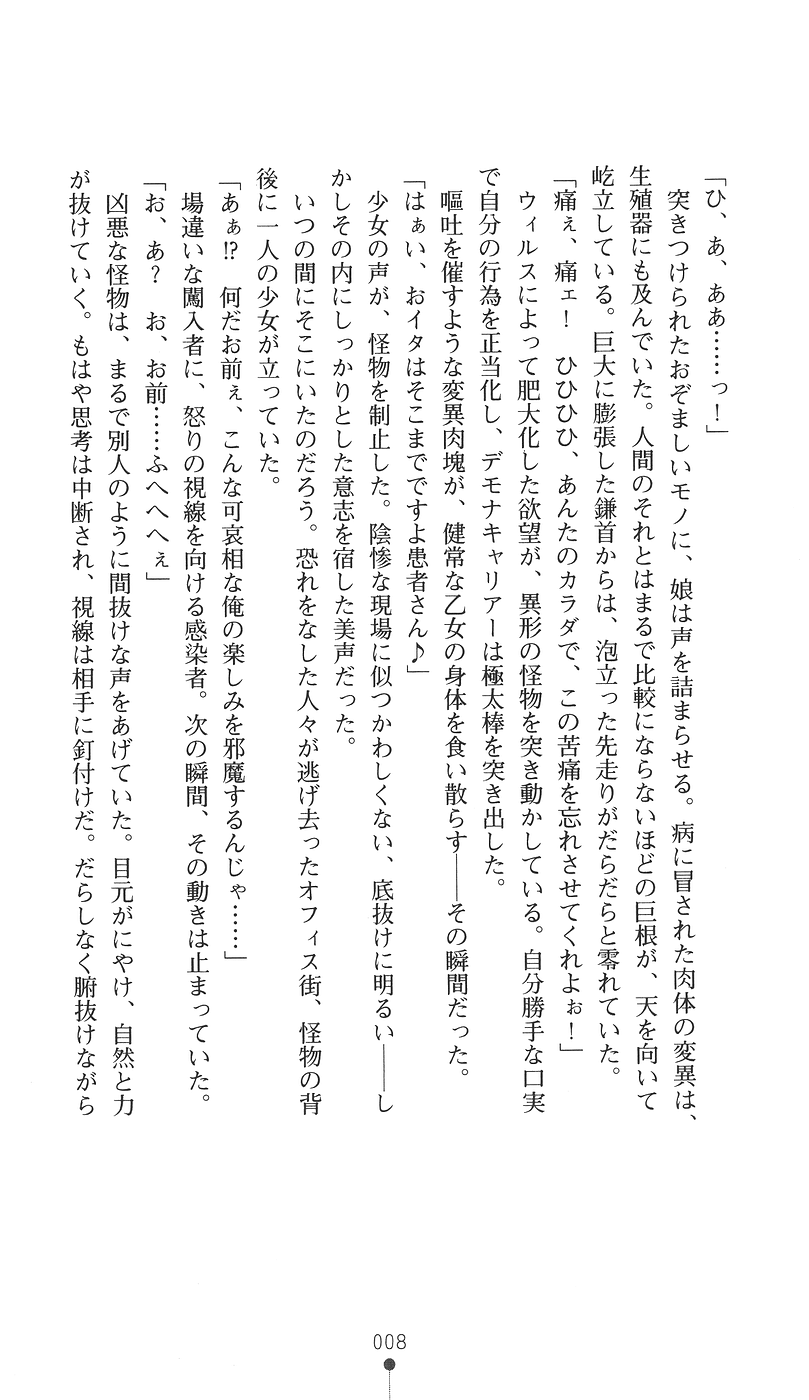 「ひ、あ、ああ……っ！」
　突きつけられたおぞましいモノに、娘は声を詰まらせる。病に冒された肉体の変異は、
生殖器にも及んでいた。人間のそれとはまるで比較にならないほどの巨根が、天を向いて
屹立している。巨大に膨張した鎌首からは、泡立った先走りがだらだらと零れていた。
「痛ぇ、痛ェ！　ひひひひ、あんたのカラダで、この苦痛を忘れさせてくれよぉ！」
　ウィルスによって肥大化した欲望が、異形の怪物を突き動かしている。自分勝手な口実
で自分の行為を正当化し、デモナキャリアーは極太棒を突き出した。
　嘔吐を催すような変異肉塊が、健常な乙女の身体を食い散らす――その瞬間だった。
「はぁい、おイタはそこまでですよ患者さん♪」
　少女の声が、怪物を制止した。陰惨な現場に似つかわしくない、底抜けに明るい――し
かしその内にしっかりとした意志を宿した美声だった。
　いつの間にそこにいたのだろう。恐れをなした人々が逃げ去ったオフィス街、怪物の背
後に一人の少女が立っていた。
「あぁ!?　何だお前ぇ、こんな可哀相な俺の楽しみを邪魔するんじゃ……」
　場違いな闖入者に、怒りの視線を向ける感染者。次の瞬間、その動きは止まっていた。
「お、あ？　お、お前……ふへへへぇ」
　凶悪な怪物は、まるで別人のように間抜けな声をあげていた。目元がにやけ、自然と力
が抜けていく。もはや思考は中断され、視線は相手に釘付けだ。だらしなく腑抜けながら
008